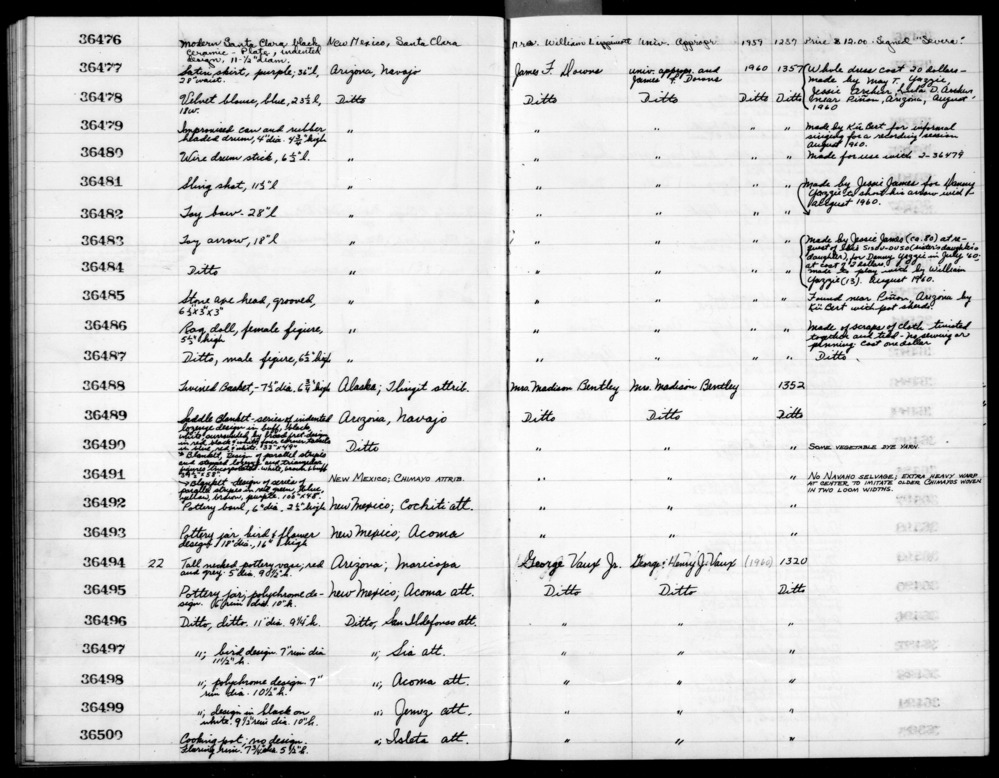 36476 Modern Santa Clara black New Mexico, Santa Clara Mrs. William Lippincott Univ. Approp. 1959 1237 Price $12.00. Signed "Severa".
ceramic - Plate, indented
design, 11-½" diam.
36477 Satin skirt, purple; 36"l, Arizona, Navajo James F. Downs univ. approp. and 1960 1357 Whole dress cost 20 dollars -
28" waist. James F. Downs made by May T. Yazzie,
36478 Velvet blouse, blue, 25½ l, Ditto Ditto Ditto Ditto Ditto near Piñon, Arizona, August,
18w. 1960
36479 Improvised can and rubber " " " " " Made by Kii Bert for informal
headed drum, 4" dia. 4¾" high singing for a recording session
August 1960.
36480 Wire drum stick, 6½" l. " " " " " Made for use with 2-36479
36481 Sling shot, 11½" l " " " " " Made by Jessie James for Danny
Yazzie to shoot his arrow with
August 1960.
36482 Toy bow - 28" l " " " " "
36483 Toy arrow, 18" l " " " " " Made by Jessie James (ca. 80) at re-
quest of (sister's daughter's
daughter), for Danny Yazzie in July '60
36484 Ditto " " " " " at cost of 2 dollars.
made to play with by William
Yazzie (13). August 1960.
36485 Stone axe head, grooved, " " " " " Found near Piñon, Arizona by
6½x3"x3" Kii Bert with pot sherds.
36486 Rag doll, female figure, " " " " " Made of scraps of cloth twisted
5½" high together and tied - no sewing or
pinning. Cost one dollar
36487 Ditto, male figure, 6½" high " " " " " Ditto.
36488 Twined Basket, - 7½" dia. 6¾" high Alaska; Tlingit attrib. Mrs. Madison Bentley Mrs. Madison Bentley 1352
36489 Saddle Blanket - series of indented Arizona, Navajo Ditto Ditto Ditto
lozenge design in buff, black,
white, surrounded by broad fret design
in red, black & white, four corner tassels
36490 Ditto " " " SOME VEGETABLE DYE YARN.
Blanket, design of parallel stripes
and stepped lozenge and triangular
figures incorporated. white,
36491 Blanket design of series of NEW MEXICO; CHIMAYO ATTRIB. " " " NO NAVAHO SELVAGE; EXTRA HEAVY WARP
parallel stripes in red, green, blue, AT CENTER, TO IMITATE OLDER CHIMAYOS WOVEN
yellow, brown, purple. 106"x48". IN TWO LOOM WIDTHS.
36492 Pottery bowl, 6" dia. 2½" high New Mexico; Cochiti att. " " "
36493 Pottery jar bird & flower New Mexico, Acoma " " "
design 18" dia., 16" high
36494 22 Tall necked pottery vase; red Arizona; Maricopa George Vaux Jr. George; Henry J. Vaux (1960) 1320
and grey. 5" dia. 9 h.
36495 Pottery jar; polychrome de- New Mexico; Acoma att. Ditto Ditto Ditto
sign. rim dia. 10" h.
36496 Ditto, ditto. 11" dia. 9¼" h. Ditto, San Ildefonso att. " " "
36497 "; bird design 7" rim dia "; Sia att. " " "
11½" h.
36498 "; polychrome design. 7" "; Acoma att. " " "
rim dia. 10½" h.
36499 "; design in black on "; Jemez att. " " "
white. 9½" rim dia. 10" h.
36500 Cooking pot; no design. "; Isleta att. " " "
Flaring rim. 7¾" dia. 5½" h.